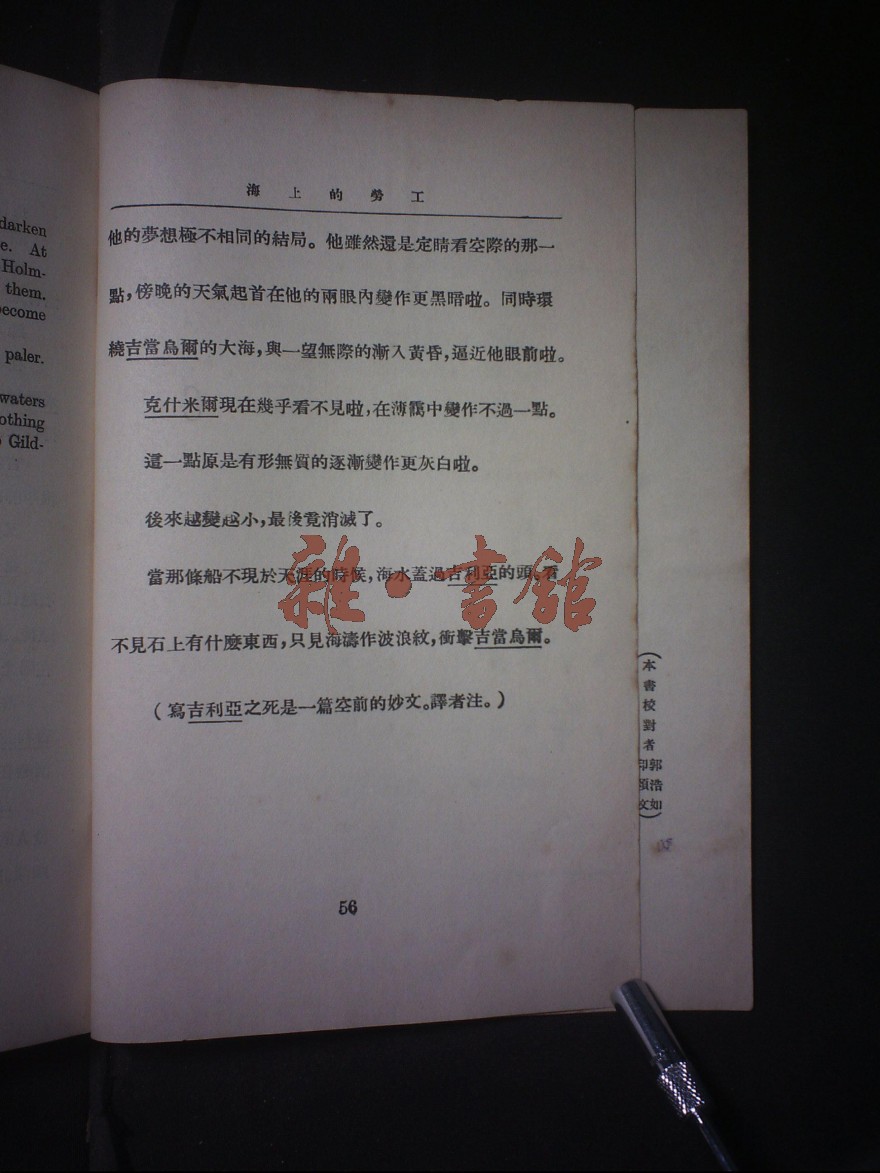 darken
e. At
Holm-
them.
become
paler.
waters
othing
Gild-
海上的勞工
他的夢想極不相同的結局。他雖然還是定睛看空際的那一
點，傍晚的天氣起首在他的兩眼內變作更黑暗啦。同時環
繞吉當烏爾的大海，與一望無際的漸入黃昏，逼近他眼前啦。
克什米爾現在幾乎看不見啦，在薄靄中變作不過一點。
這一點原是有形無質的逐漸變作更灰白啦。
後來越變越小，最後竟消滅了。
當那條船不現於天涯的時候，海水蓋過吉利亞的頭。看
不見石上有什麼東西，只見海濤作波浪紋，衝擊吉當烏爾。
（寫吉利亞之死是一篇空前的妙文。譯者注。）
56
（本書校對者郭浩如印頌文）
雜·書館